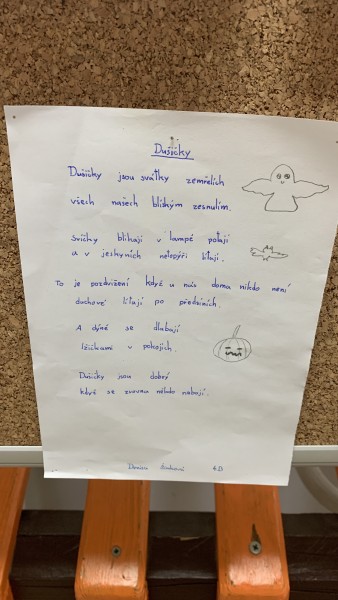 Dušičky
Dušičky jsou svátky zemřelých
všech našech blízkým zesnulím.
Svíčky blikají v lampě potají
a v jeskyních netopýři lítají.
To je pozdvižení když u nás doma nikdo není
duchové lítají po předsíních.
A dýně se dlabají
lžičkama v pokojích.
Dušičky jsou dobrý
když se zrovna někdo nabojí.
4.D